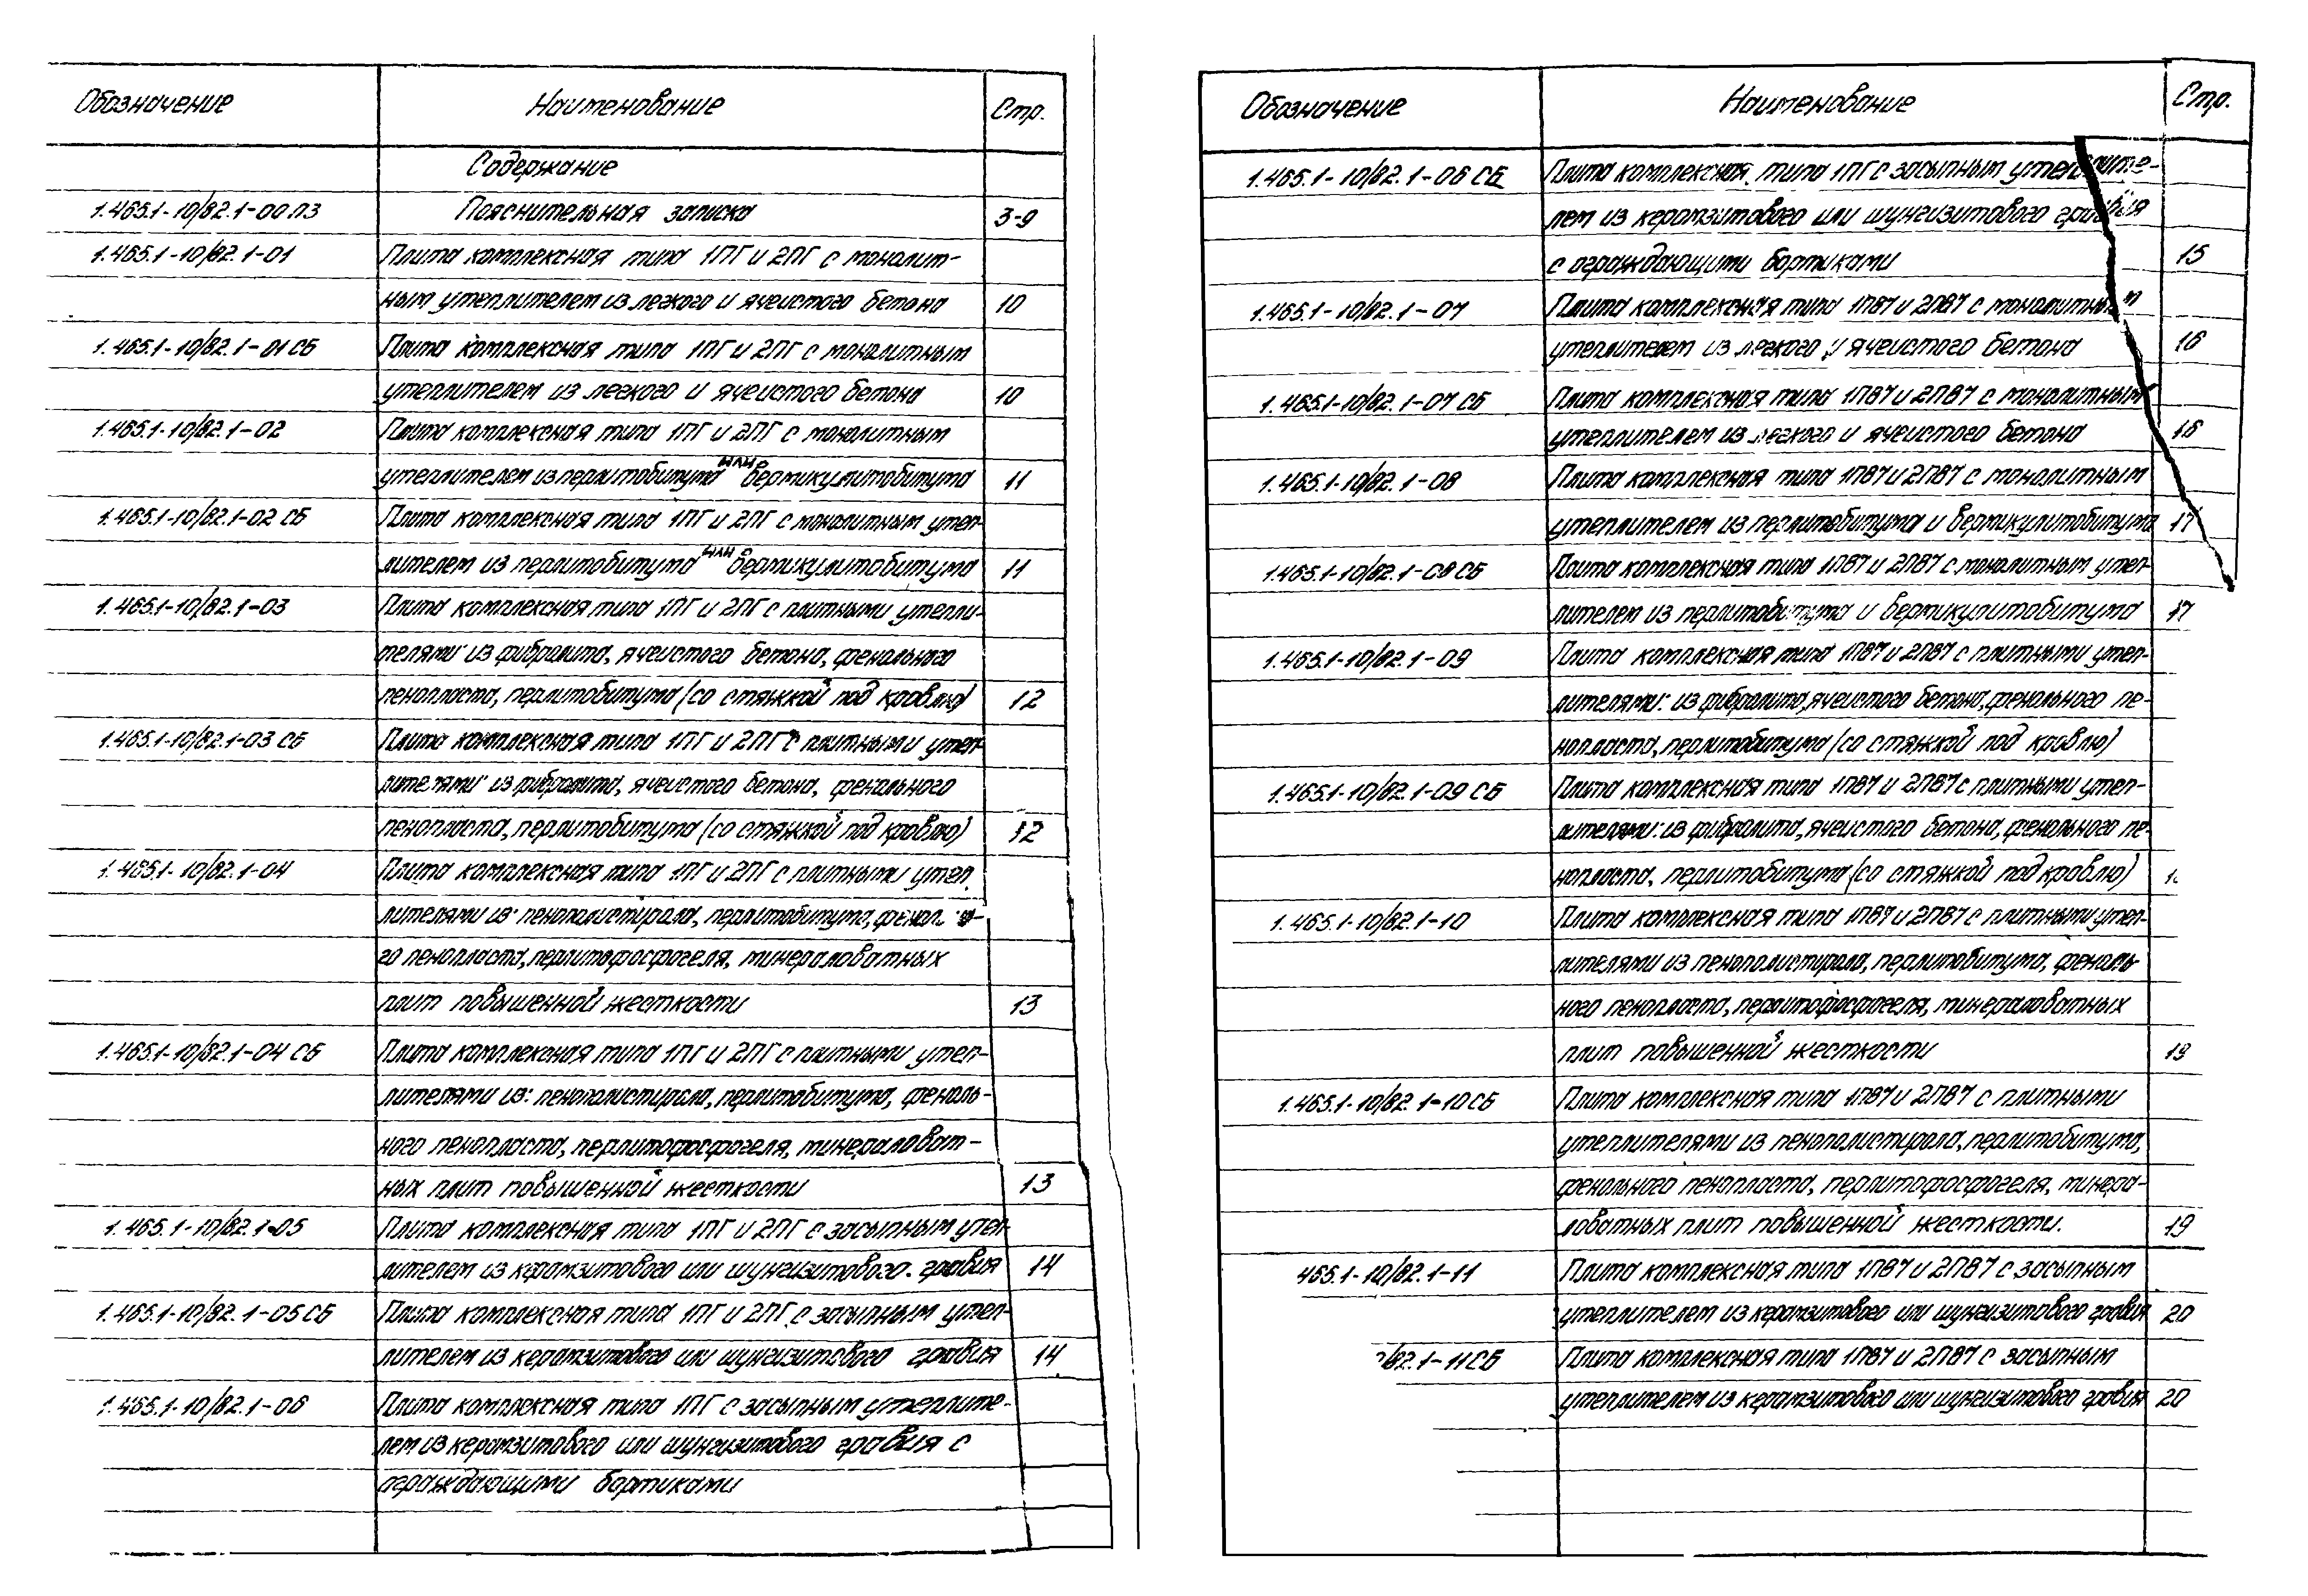 Обозначение Наименование Стр.
Содержание
1.465.1-10/82.1-00 ПЗ Пояснительная записка 3-9
1.465.1-10/82.1-01 Плита комплексная типа 1ПГ и 2ПГ с монолит-
ным утеплителем из легкого и ячеистого бетона 10
1.465.1-10/82.1-01 СБ Плита комплексная типа 1ПГ и 2ПГ с монолитным
утеплителем из легкого и ячеистого бетона 10
1.465.1-10/82.1-02 Плита комплексная типа 1ПГ и 2ПГ с монолитным
утеплителем из перлитобитума или вермикулитобитума 11
1.465.1-10/82.1-02 СБ Плита комплексная типа 1ПГ и 2ПГ с монолитным утеп-
лителем из перлитобитума или вермикулитобитума 11
1.465.1-10/82.1-03 Плита комплексная типа 1ПГ и 2ПГ с плитными утепли-
телями из фибролита, ячеистого бетона, фенольного
пенопласта, перлитобитума (со стяжкой под кровлю) 12
1.465.1-10/82.1-03 СБ Плита комплексная типа 1ПГ и 2ПГ с плитными утеп-
лителями: из фибролита, ячеистого бетона, фенольного
пенопласта, перлитобитума (со стяжкой под кровлю) 12
1.465.1-10/82.1-04 Плита комплексная типа 1ПГ и 2ПГ с плитными утеп.
лителями из: пенополистирола, перлитобитума,
го пенопласта, перлитофосфогеля, минераловатных
плит повышенной жесткости 13
1.465.1-10/82.1-04 СБ Плита комплексная типа 1ПГ и 2ПГ с плитными утеп-
лителями из: пенополистирола, перлитобитума, феноль-
ного пенопласта, перлитофосфогеля, минераловат-
ных плит повышенной жесткости 13
1.465.1-10/82.1-05 Плита комплексная типа 1ПГ и 2ПГ с засыпным утеп-
лителем из керамзитового или шунгизитового. гравия 14
1.465.1-10/82.1-05 СБ Плита комплексная типа 1ПГ и 2ПГ с засыпным утеп-
лителем из керамзитового или шунгизитового гравия 14
1.465.1-10/82.1-06 Плита комплексная типа 1ПГ с засыпным утеплите-
лем из керамзитового или шунгизитового гравия с
ограждающими бортиками
Обозначение Наименование Стр.
1.465.1-10/82.1-06 СБ Плита комплексная типа 1ПГ с засыпным утеплите-
лем из керамзитового или шунгизитового гравия
с ограждающими бортиками 15
1.465.1-10/82.1-07 Плита комплексная типа 1П87 и 2П87 с монолитным
утеплителем из легкого и ячеистого бетона 16
1.465.1-10/82.1-07 СБ Плита комплексная типа 1П87 и 2П87 с монолитным
утеплителем из легкого и ячеистого бетона 16
1.465.1-10/82.1-08 Плита комплексная типа 1П87 и 2П87 с монолитным
утеплителем из перлитобитума и вермикулитобитума 17
1.465.1-10/82.1-08 СБ Плита комплексная типа 1П87 и 2П87 с монолитным утеп-
лителем из перлитобитума и вермикулитобитума 17
1.465.1-10/82.1-09 Плита комплексная типа 1П87 и 2П87 с плитными утеп-
лителями: из фибролита, ячеистого бетона, фенольного пе-
нопласта, перлитобитума (со стяжкой под кровлю)
1.465.1-10/82.1-09 СБ Плита комплексная типа 1П87 и 2П87 с плитными утеп-
лителями: из фибролита, ячеистого бетона, фенольного пе-
нопласта, перлитобитума (со стяжкой под кровлю)
1.465.1-10/82.1-10 Плита комплексная типа 1П87 и 2П87 с плитными утеп-
лителями из пенополистирола, перлитобитума, феноль-
ного пенопласта, перлитофосфогеля, минераловатных
плит повышенной жесткости 19
1.465.1-10/82.1-10 СБ Плита комплексная типа 1П87 и 2П87 с плитными
утеплителями из пенополистирола, перлитобитума,
фенольного пенопласта, перлитофосфогеля, минера-
ловатных плит повышенной жесткости. 19
465.1-10/82.1-11 Плита комплексная типа 1П87 и 2П87 с засыпным
утеплителем из керамзитового или шунгизитового гравия 20
/82.1-11 СБ Плита комплексная типа 1П87 и 2П87 с засыпным
утеплителем из керамзитового или шунгизитового гравия 20